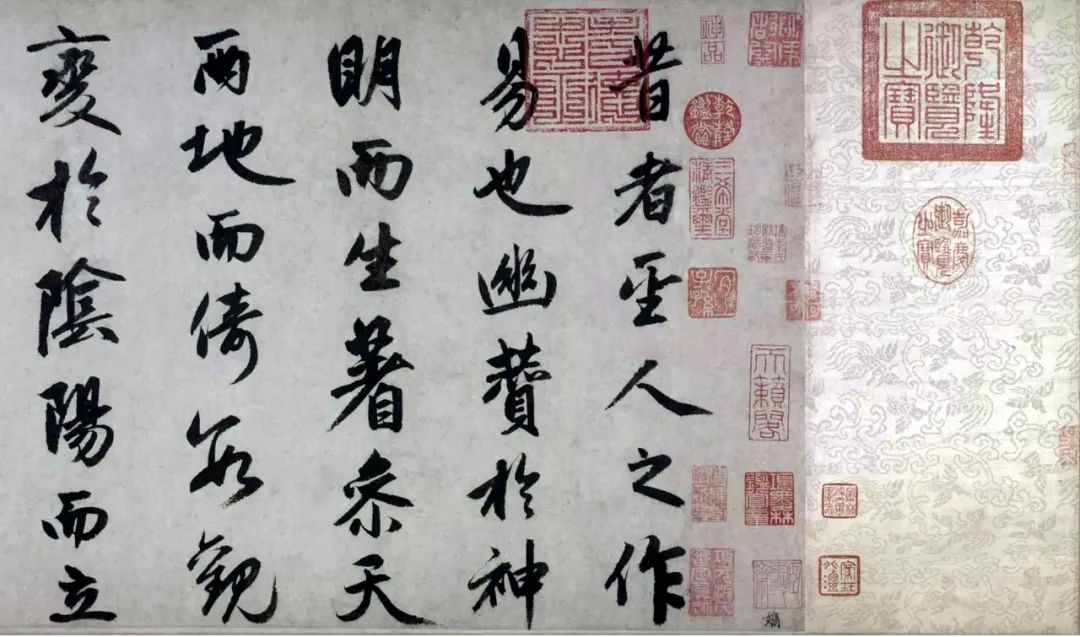 乾隆御覽之寶
嘉慶御覽之寶
神品
乾隆鑑賞
三希堂精鑑璽
宜子孫
天籟閣
項墨林鑑賞章
昔者聖人之作
易也幽贊於神
明而生蓍叅天
兩地而倚數觀
變於陰陽而立